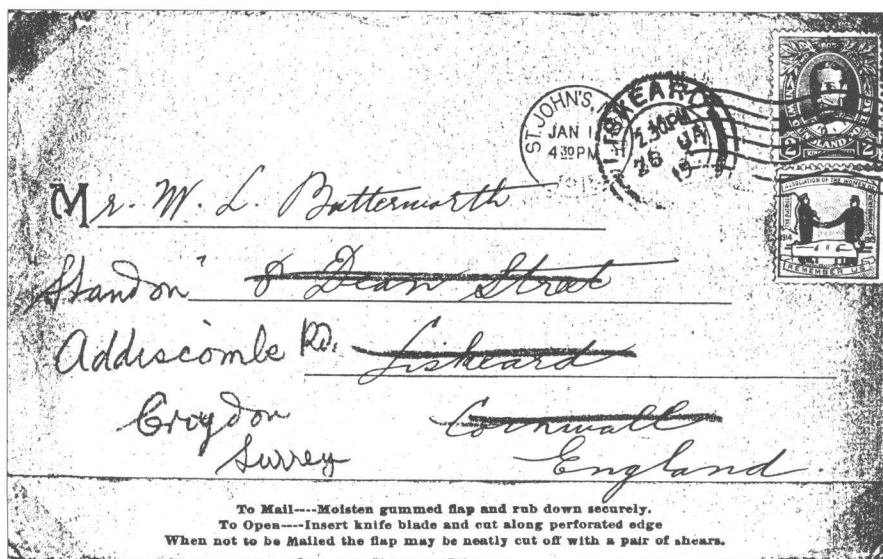 ST. JOHN'S,
JAN 1
4 30 PM
LISKEARD
2.30PM
26 JA
15
2 2
ASSOCIATION OF THE WOMEN OF
1914
REMEMBER US
Mr. W. L. Butterworth
"Standon" 8 Dean Street
Addiscombe Rd. Liskeard
Croydon Cornwall
Surrey England.
To Mail----Moisten gummed flap and rub down securely.
To Open----Insert knife blade and cut along perforated edge
When not to be Mailed the flap may be neatly cut off with a pair of shears.